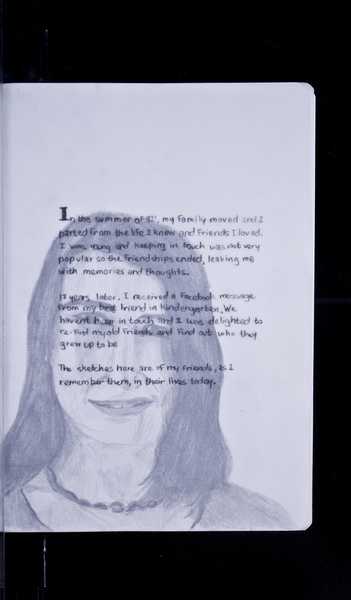 In the summer of 92', my family moved and I
parted from the life I knew and friends I loved.
I was young and keeping in touch was not very
popular so the friendships ended, leaving me
with memories and thoughts.
17 years later, I received a Facebook message
from my best friend in kindergarten. We
haven't been in touch and I was delighted to
re-find my old friends and find out who they
grew up to be
The sketches here are of my friends, as I
remember them, in their lives today.